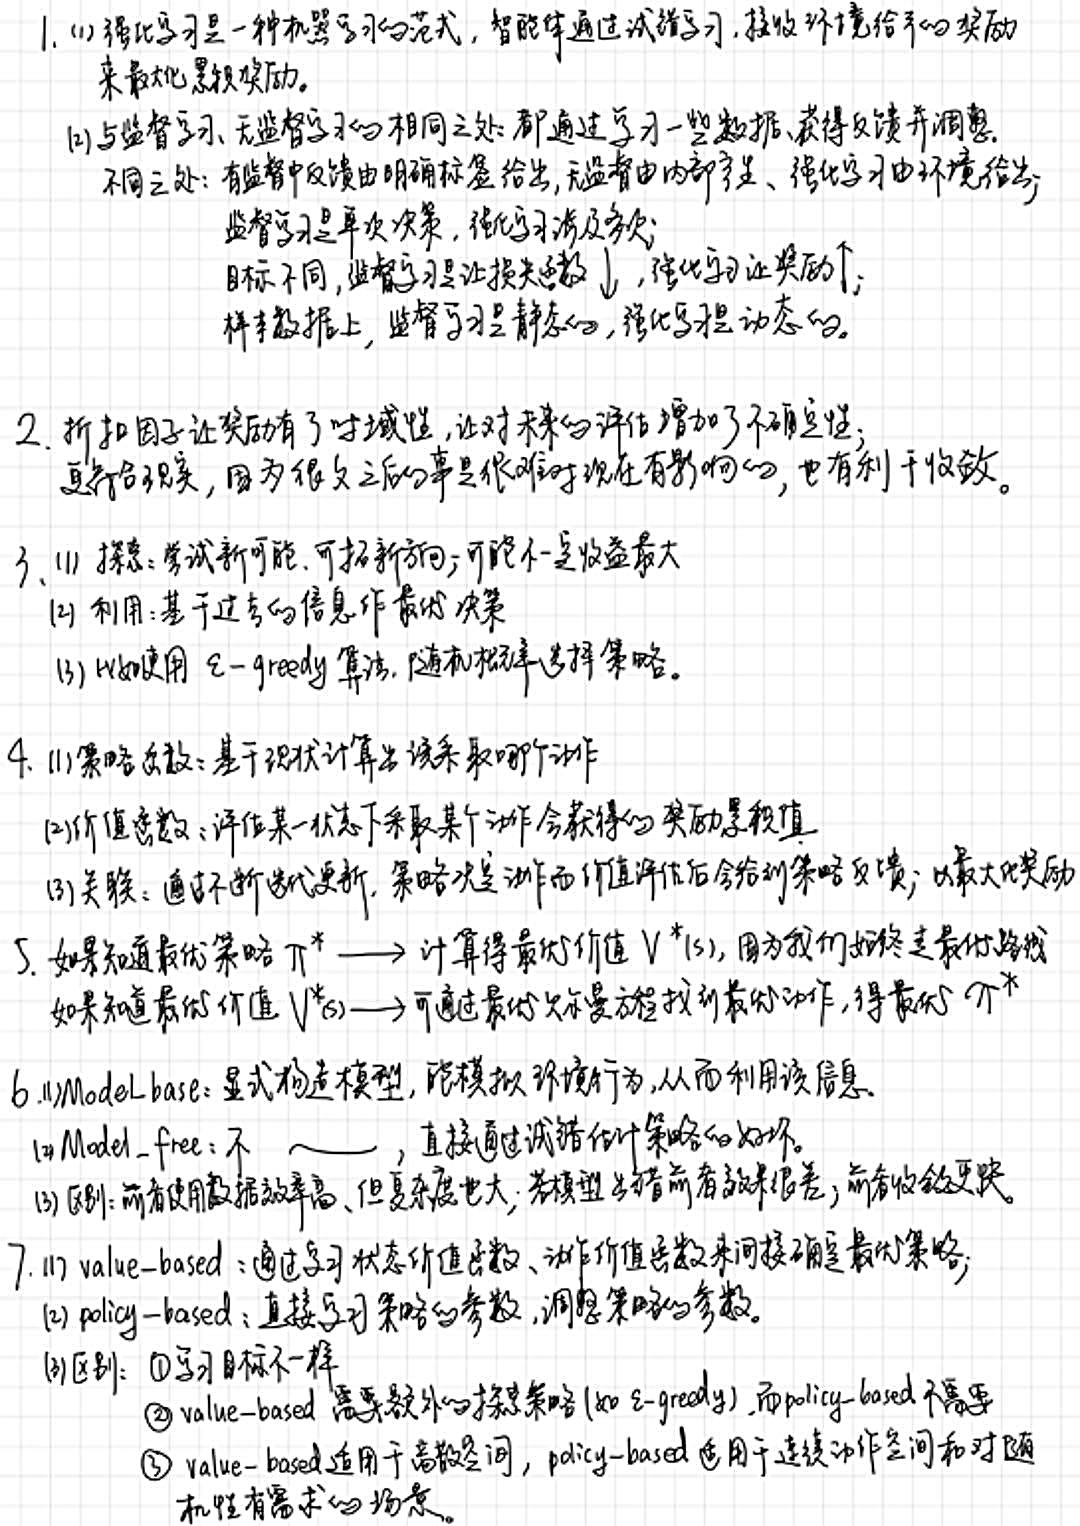 1. (1) 强化学习是一种机器学习的范式，智能体通过试错学习，接收环境给予的奖励
来最大化累积奖励。
(2) 与监督学习、无监督学习的相同之处：都通过学习一些数据、获得反馈并调整。
不同之处：有监督中反馈由明确标签给出，无监督由内部产生、强化学习由环境给出；
监督学习是单次决策，强化学习涉及多次；
目标不同，监督学习是让损失函数↓，强化学习让奖励↑；
样本数据上，监督学习是静态的，强化学习是动态的。
2. 折扣因子让奖励有了时域性，让对未来的评估增加了不确定性；
更符合现实，因为很久之后的事是很难对现在有影响的，也有利于收敛。
3. (1) 探索：尝试新可能、可拓新方向；可能不一定收益最大
(2) 利用：基于过去的信息作最优决策
(3) 比如使用 ε-greedy 算法，随机概率选择策略。
4. (1) 策略函数：基于现状计算出该采取哪个动作
(2) 价值函数：评估某一状态下采取某个动作会获得的奖励累积值
(3) 关联：通过不断迭代更新，策略决定动作而价值评估后会给到策略反馈；以最大化奖励
5. 如果知道最优策略 π* → 计算得最优价值 V*(s)，因为我们始终走最优路线
如果知道最优价值 V*(s) → 可通过最优贝尔曼方程找到最优动作，得最优 π*
6. (1) Model_base：显式构造模型，能模拟环境行为，从而利用该信息。
(2) Model_free：不 ～，直接通过试错估计策略的好坏。
(3) 区别：前者使用数据效率高、但复杂度也大；若模型出错前者效果很差；前者收敛更快。
7. (1) value-based：通过学习状态价值函数、动作价值函数来间接确定最优策略；
(2) policy-based：直接学习策略的参数，调整策略的参数。
(3) 区别：① 学习目标不一样
② value-based 需要额外的探索策略（如 ε-greedy），而policy-based 不需要
③ value-based适用于离散空间，policy-based 适用于连续动作空间和对随
机性有需求的场景。